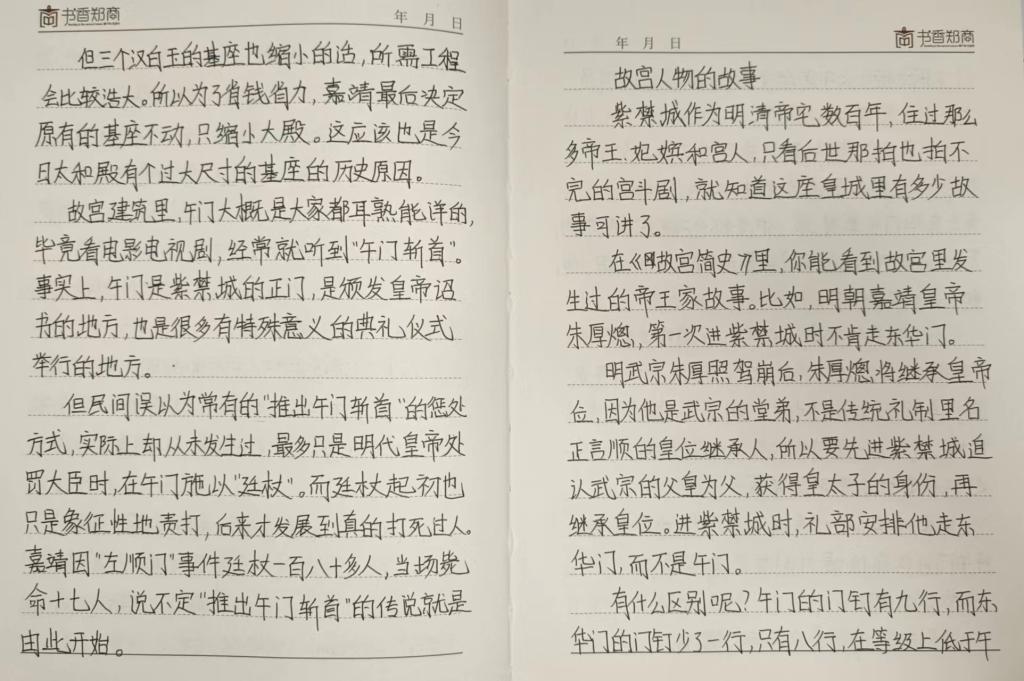 书香知商
年 月 日
但三个汉白玉的基座也缩小的话，所需工程
会比较浩大。所以为了省钱省力，嘉靖最后决定
原有的基座不动，只缩小大殿。这应该也是今
日太和殿有个过大尺寸的基座的历史原因。
故宫建筑里，午门大概是大家都耳熟能详的，
毕竟看电影电视剧，经常就听到“午门斩首”。
事实上，午门是紫禁城的正门，是颁发皇帝诏
书的地方，也是很多有特殊意义的典礼仪式
举行的地方。
但民间误以为常有的“推出午门斩首”的惩处
方式，实际上却从未发生过，最多只是明代皇帝处
罚大臣时，在午门施以“廷杖”。而廷杖起初也
只是象征性地责打，后来才发展到真的打死过人。
嘉靖因“左顺门”事件廷杖一百八十多人，当场毙
命十七人，说不定“推出午门斩首”的传说就是
由此开始。
年 月 日
书香知商
故宫人物的故事
紫禁城作为明清帝宅数百年，住过那么
多帝王、妃嫔和宫人，只看后世那拍也拍不
完的宫斗剧，就知道这座皇城里有多少故
事可讲了。
在《故宫简史》里，你能看到故宫里发
生过的帝王家故事。比如，明朝嘉靖皇帝
朱厚熜，第一次进紫禁城时不肯走东华门。
明武宗朱厚照驾崩后，朱厚熜将继承皇帝
位，因为他是武宗的堂弟，不是传统礼制里名
正言顺的皇位继承人，所以要先进紫禁城追
认武宗的父皇为父，获得皇太子的身份，再
继承皇位。进紫禁城时，礼部安排他走东
华门，而不是午门。
有什么区别呢？午门的门钉有九行，而东
华门的门钉少了一行，只有八行，在等级上低于午